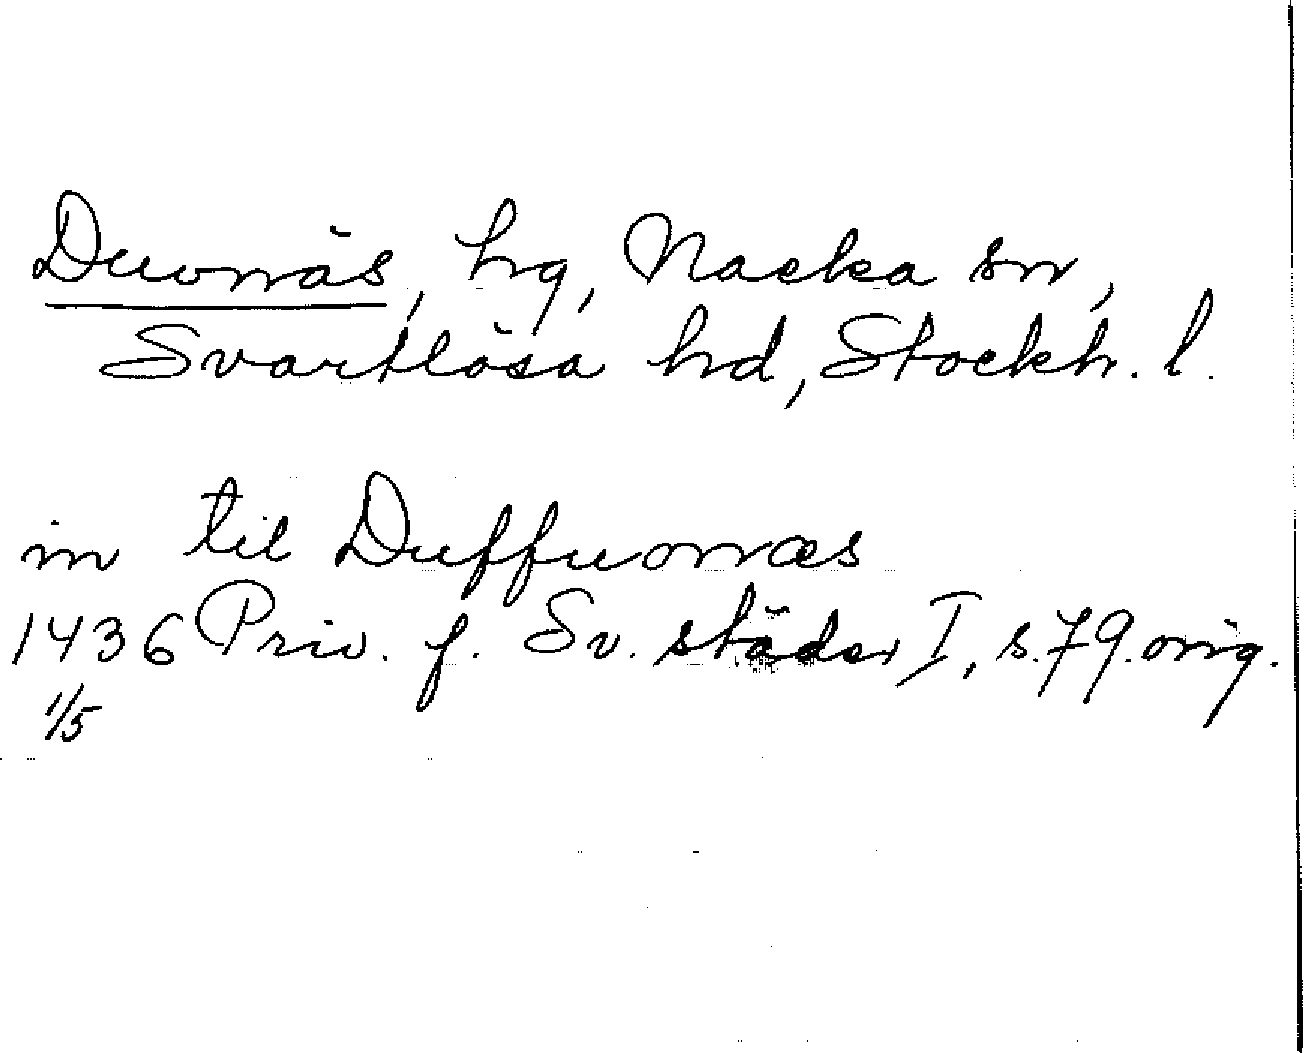 Duvnäs, hg, Nacka sn,
Svartlösa hd, Stockh. l.
in til Duffuonæs
1436 Priv. f. Sv. städer I, s. 79. orig.
1/5